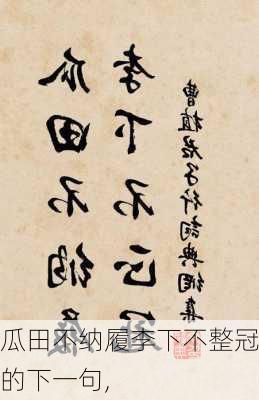 瓜田不納
李下不正
曹植君子行詞典網集
瓜田不纳履李下不整冠
的下一句,